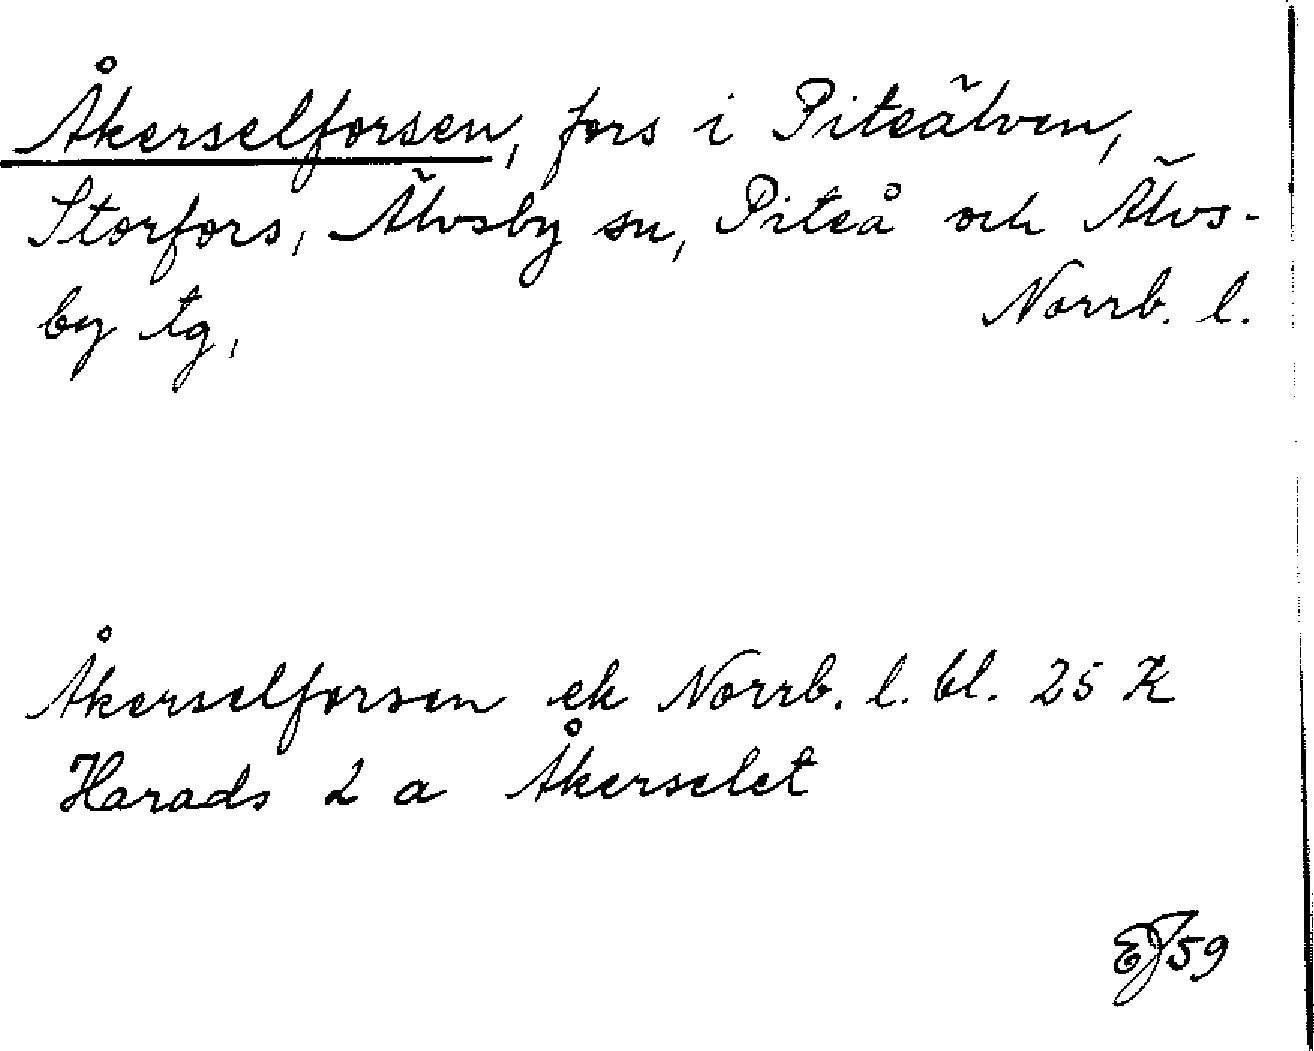 Åkerselforsen, fors i Piteälven,
Storfors, Älvsby sn, Piteå och Älvs-
by tg, Norrb. l.
Åkerselforsen ek Norrb. l. bl. 25 K
Harads 2 a Åkerselet
EJ 59